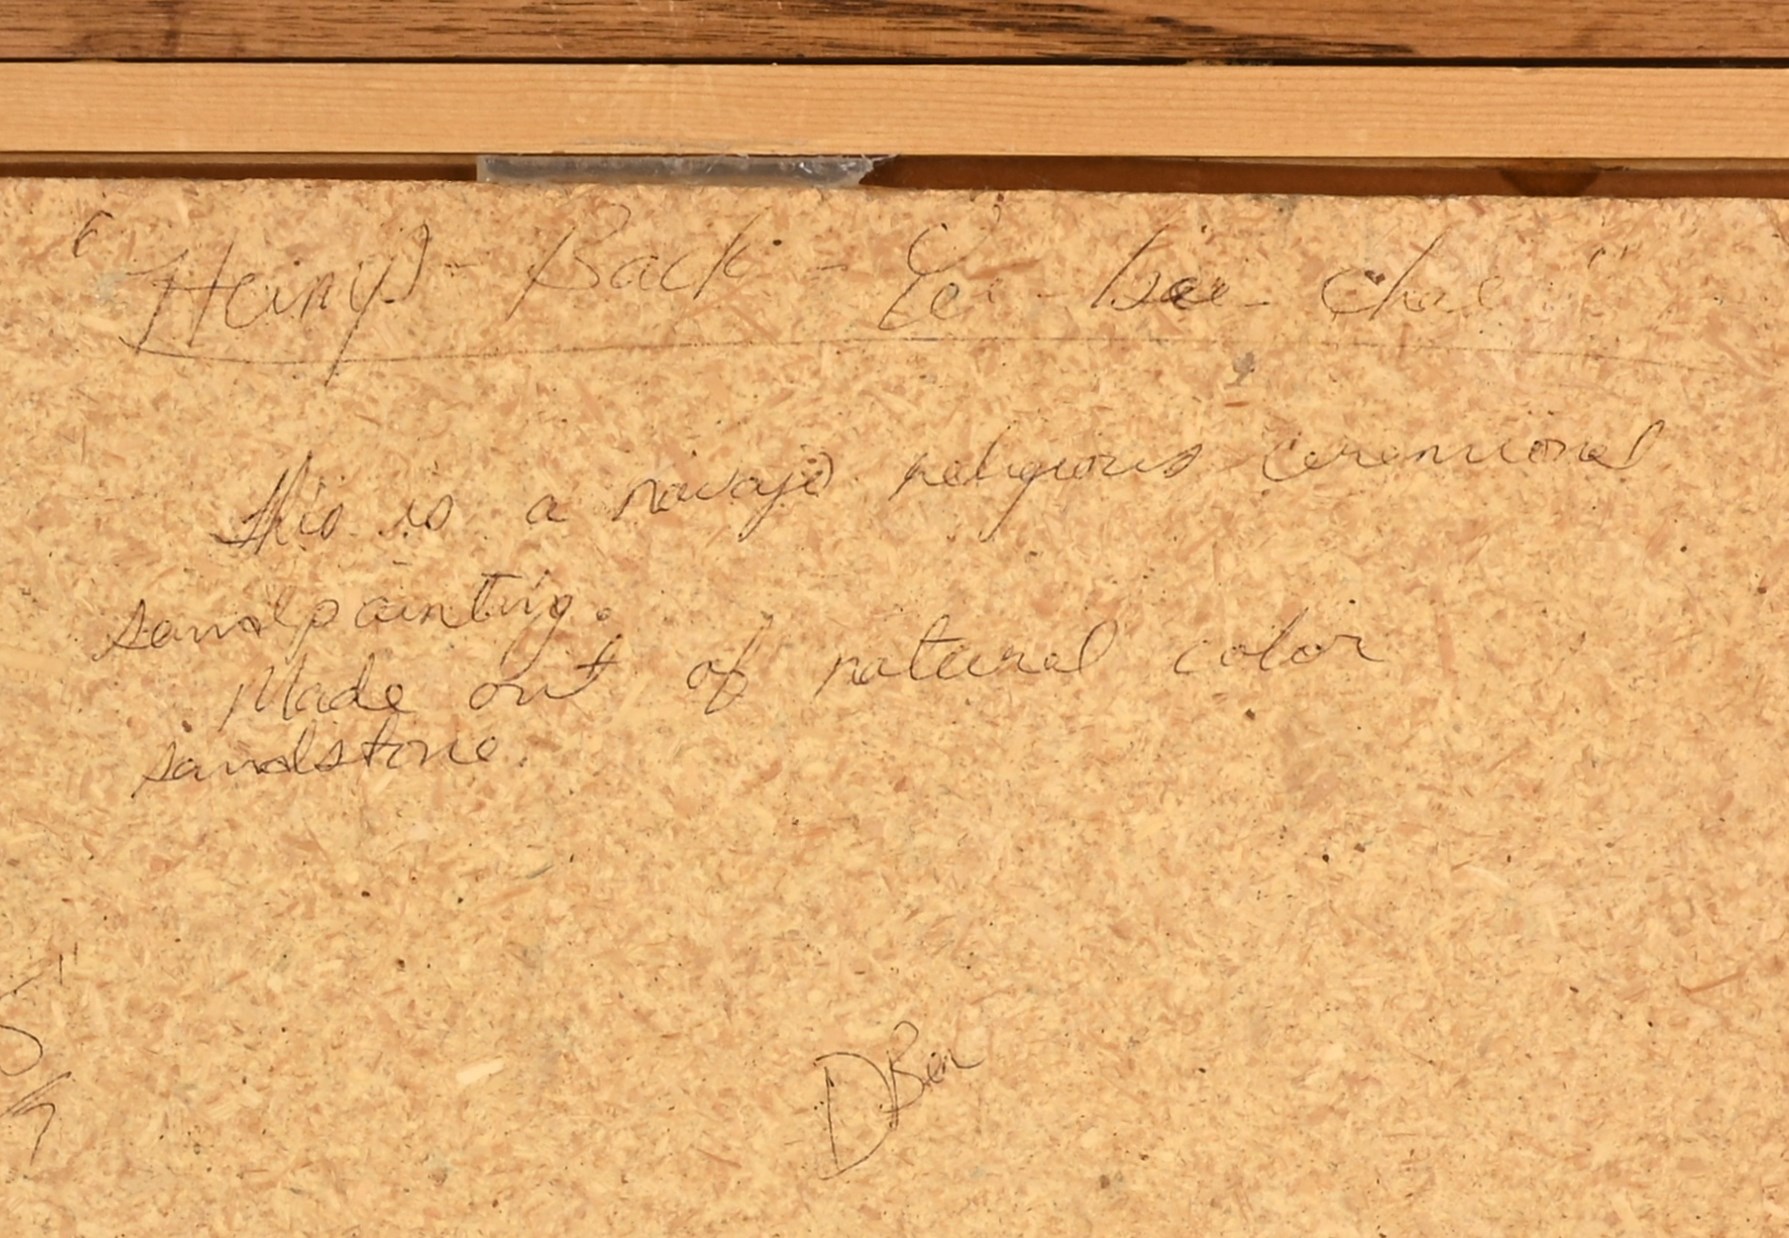 " Heiny - Back - Yei - bei - chai "
This is a navajo religious ceremional
sandpainting.
Made out of natural color
sandstone.
D Ben